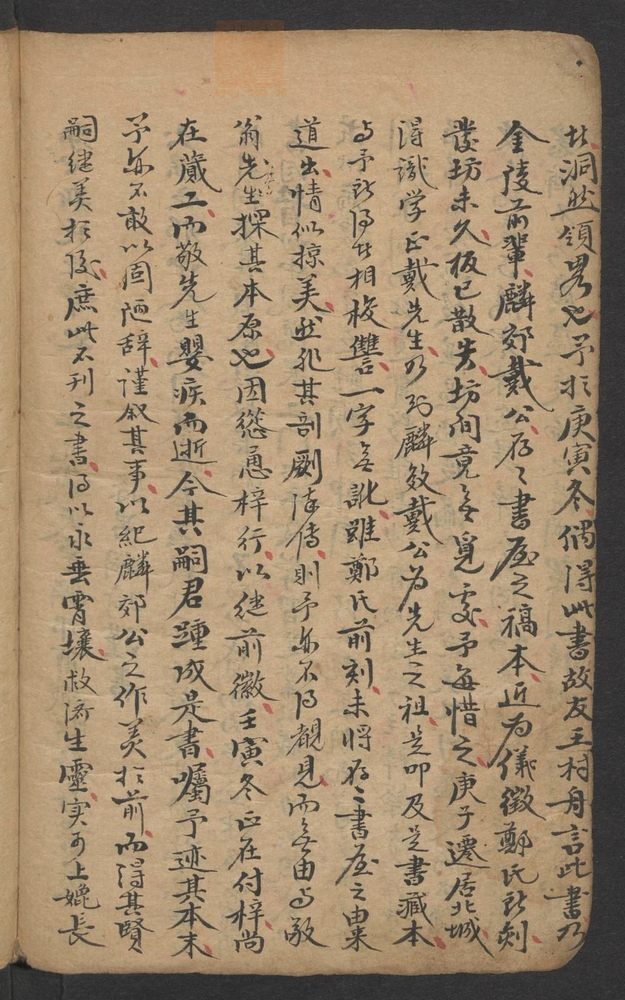 其洞然領畧也予於庚寅冬偶得此書故友王村舟言此書乃
金陵前輩麟郊戴公存存書屋之稿本近為儀徵鄭氏所刻
發坊未久板已散失坊間竟無覓處予每惜之庚子遷居北城
得識学正戴先生乃知麟效戴公为先生之祖並叩及是書藏本
与予所得者相校讐一字無訛雖鄭氏前刻未将存存書屋之由来
道出情似掠美然非其剞劂流傳則予亦不得覩見而無由与敬
翁先生探其本原也因慫恿梓行以继前徽壬寅冬正在付梓尚
在蕆工而敬先生嬰疾而逝今其嗣君踵成是書囑予述其本末
予亦不敢以固陋辞謹叙其事以紀麟郊公之作美於前而得其賢
嗣继美於後庶此不刊之書得以永垂霄壤救济生靈实可上媲長